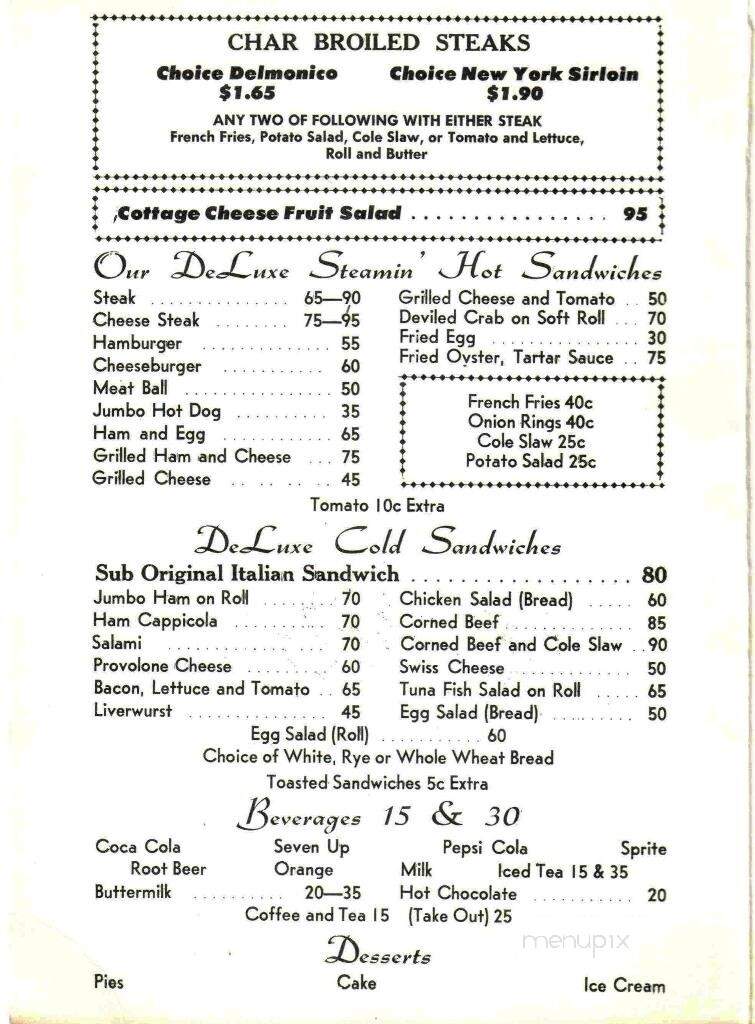 CHAR BROILED STEAKS
Choice Delmonico Choice New York Sirloin
$1.65 $1.90
ANY TWO OF FOLLOWING WITH EITHER STEAK
French Fries, Potato Salad, Cole Slaw, or Tomato and Lettuce,
Roll and Butter
Cottage Cheese Fruit Salad . . . . . . . . . . . . . . . . 95
Our DeLuxe Steamin' Hot Sandwiches
Steak . . . . . . . . . . . . . . 65—90
Cheese Steak . . . . . . . . 75—95
Hamburger . . . . . . . . . . . . 55
Cheeseburger . . . . . . . . . . 60
Meat Ball . . . . . . . . . . . . . . 50
Jumbo Hot Dog . . . . . . . . . 35
Ham and Egg . . . . . . . . . . . 65
Grilled Ham and Cheese . . . 75
Grilled Cheese . . . . . . . . 45
Grilled Cheese and Tomato . . 50
Deviled Crab on Soft Roll . . . 70
Fried Egg . . . . . . . . . . . . . . 30
Fried Oyster, Tartar Sauce . . 75
French Fries 40c
Onion Rings 40c
Cole Slaw 25c
Potato Salad 25c
Tomato 10c Extra
DeLuxe Cold Sandwiches
Sub Original Italian Sandwich . . . . . . . . . . . . . . . . . . 80
Jumbo Ham on Roll . . . . . . . 70
Ham Cappicola . . . . . . . . . . 70
Salami . . . . . . . . . . . . . . 70
Provolone Cheese . . . . . . . . 60
Bacon, Lettuce and Tomato . . 65
Liverwurst . . . . . . . . . . . . . 45
Chicken Salad (Bread) . . . . . 60
Corned Beef . . . . . . . . . . . . 85
Corned Beef and Cole Slaw . . 90
Swiss Cheese . . . . . . . . . . . 50
Tuna Fish Salad on Roll . . . . . 65
Egg Salad (Bread) . . . . . . . . 50
Egg Salad (Roll) . . . . . . . . . . . 60
Choice of White, Rye or Whole Wheat Bread
Toasted Sandwiches 5c Extra
Beverages 15 & 30
Coca Cola Seven Up Pepsi Cola Sprite
Root Beer Orange Milk Iced Tea 15 & 35
Buttermilk . . . . . . . . . . 20—35 Hot Chocolate . . . . . . . . . . . 20
Coffee and Tea 15 (Take Out) 25
menupix
Desserts
Pies Cake Ice Cream